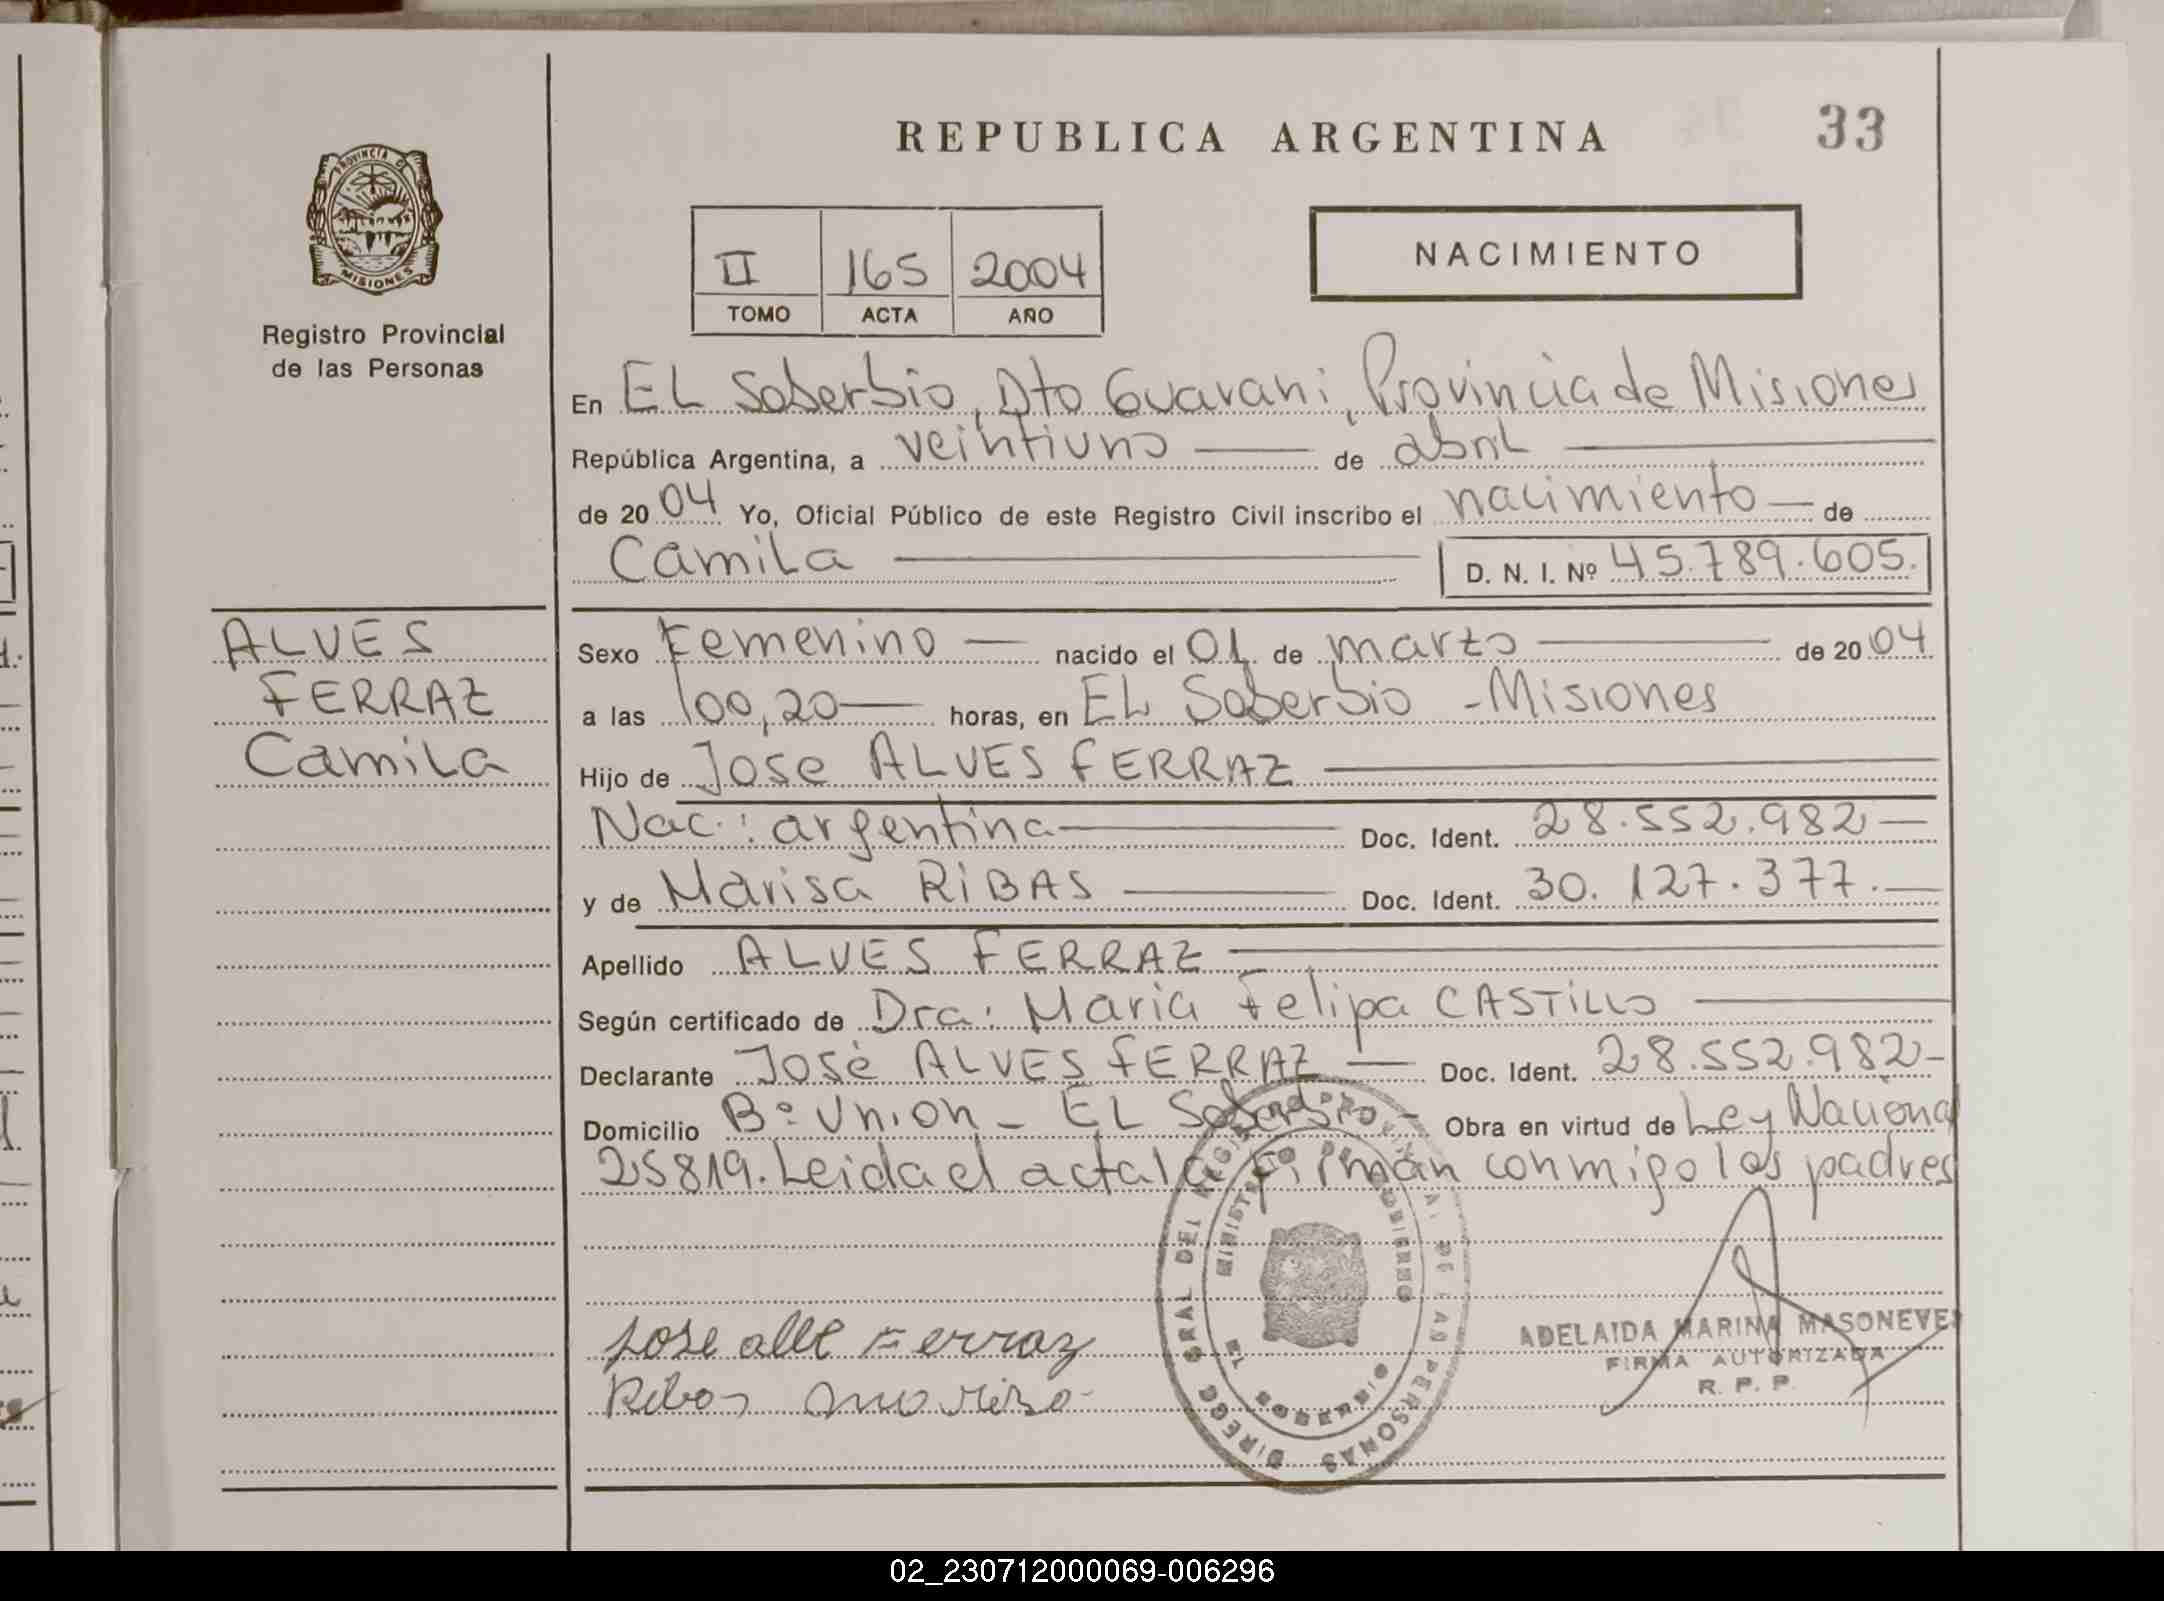 REPUBLICA ARGENTINA
33
PROVINCIA
MISIONES
Registro Provincial
de las Personas
II 165 2004
TOMO ACTA AÑO
NACIMIENTO
En EL Soberbio, Dto Guarani, Provincia de Misiones
República Argentina, a veintiuno de abril
de 2004 Yo, Oficial Público de este Registro Civil inscribo el nacimiento de
Camila D. N. I. Nº 45.789.605.
ALVES
FERRAZ
Camila
Sexo Femenino nacido el 01 de marzo de 2004
a las 00,20 horas, en EL Soberbio - Misiones
Hijo de Jose ALVES FERRAZ
Nac.: argentina Doc. Ident. 28.552.982
y de Marisa RIBAS Doc. Ident. 30.127.377.
Apellido ALVES FERRAZ
Según certificado de Dra. Maria Felipa CASTILLO
Declarante José ALVES FERRAZ Doc. Ident. 28.552.982
Domicilio Bº Union - EL Soberbio - Obra en virtud de Ley Nacional
25819. Leida el acta la firman conmigo los padres
DIREC. GRAL DEL REGISTRO PROVINCIAL DE LAS PERSONAS
MINISTERIO DE GOBIERNO
EL SOBERBIO
Jose alve Ferraz
Ribas Marisa
ADELAIDA MARINA MASONEVE
FIRMA AUTORIZADA
R. P. P.
02_230712000069-006296